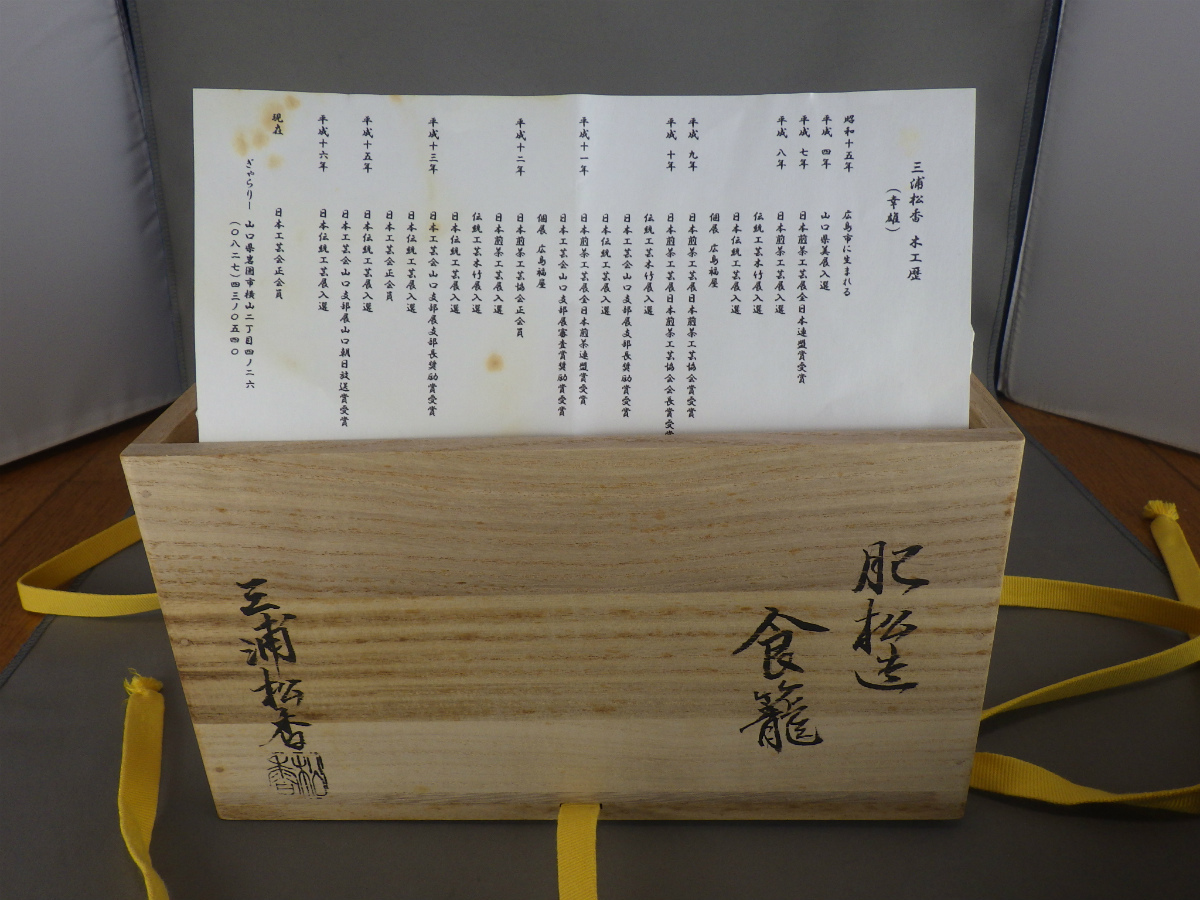 三浦松香 木工歴
(幸雄)
昭和十五年 広島市に生まれる
平成 四年 山口県美展入選
平成 七年 日本煎茶工芸展全日本連盟賞受賞
平成 八年 日本伝統工芸展入選
伝統工芸木竹展入選
日本伝統工芸展入選
個展 広島福屋
平成 九年 日本煎茶工芸展日本煎茶工芸協会賞受賞
平成 十年 日本煎茶工芸展日本煎茶工芸協会会長賞受賞
伝統工芸木竹展入選
日本工芸会山口支部展支部長奨励賞受賞
日本伝統工芸展入選
平成十一年 日本煎茶工芸展全日本煎茶連盟賞受賞
日本工芸会山口支部展審査賞奨励賞受賞
個展 広島福屋
平成十二年 日本煎茶工芸協会正会員
日本煎茶工芸展入選
伝統工芸木竹展入選
日本伝統工芸展入選
平成十三年 日本工芸会山口支部展支部長奨励賞受賞
日本伝統工芸展入選
日本工芸会正会員
平成十五年 日本伝統工芸展入選
日本工芸会山口支部展山口朝日放送賞受賞
平成十六年 日本伝統工芸展入選
現在 日本工芸会正会員
ぎゃらりー 山口県岩国市横山二丁目四ノ二六
(〇八二七)四三ノ〇五四〇
肥松造
食籠
三浦松香
松香